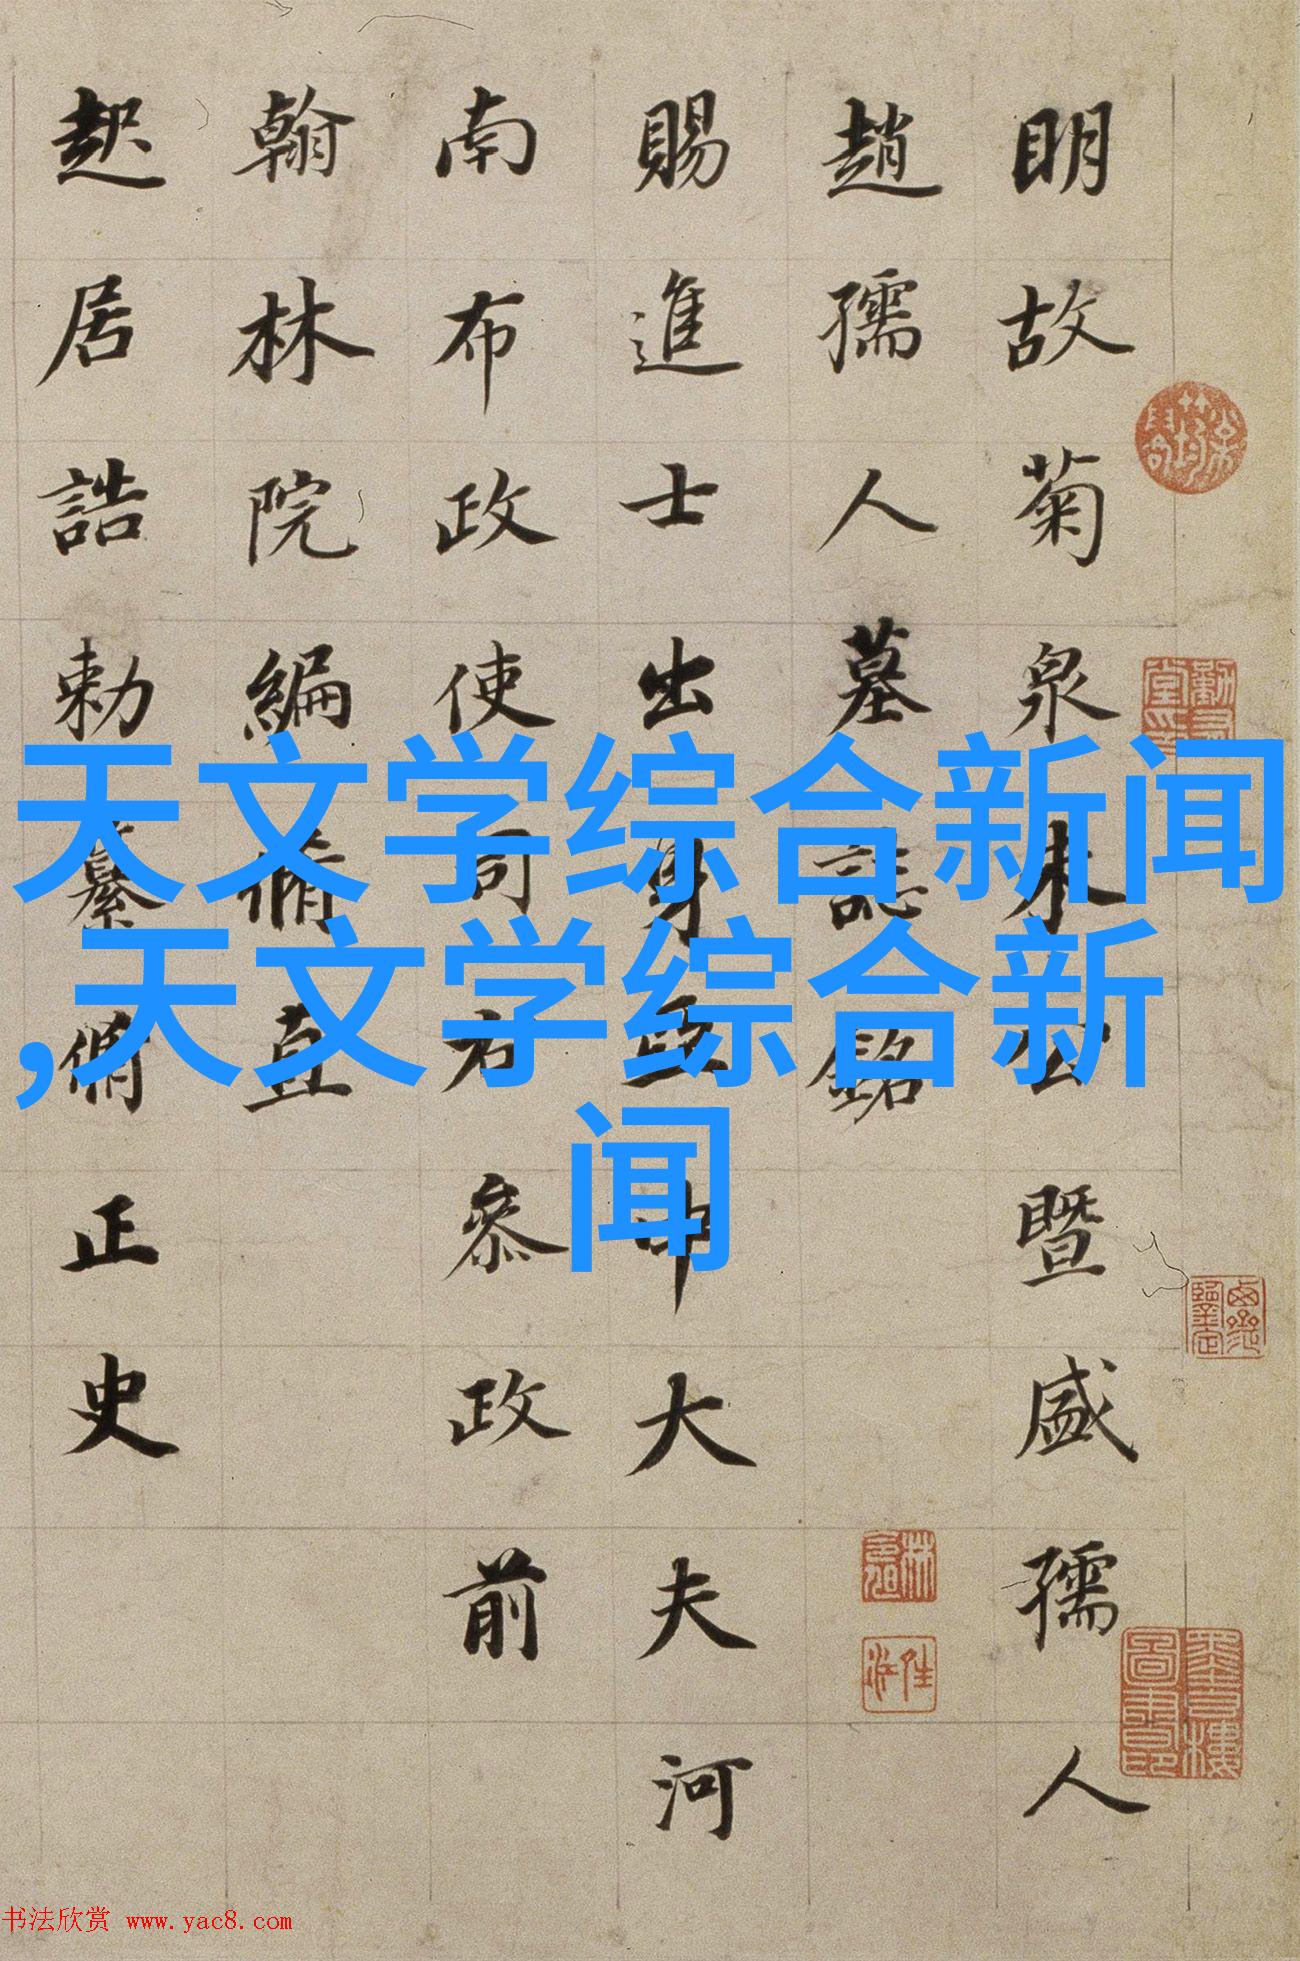 明故菊泉朱公暨盛孺人
趙孺人墓誌銘
賜進士出身亞中大夫河
南布政使司右叅政前
翰林院編脩直
起居誥勅纂脩正史
天文学综合新闻
,天文学综合新
闻
书法欣赏 www.yac8.com